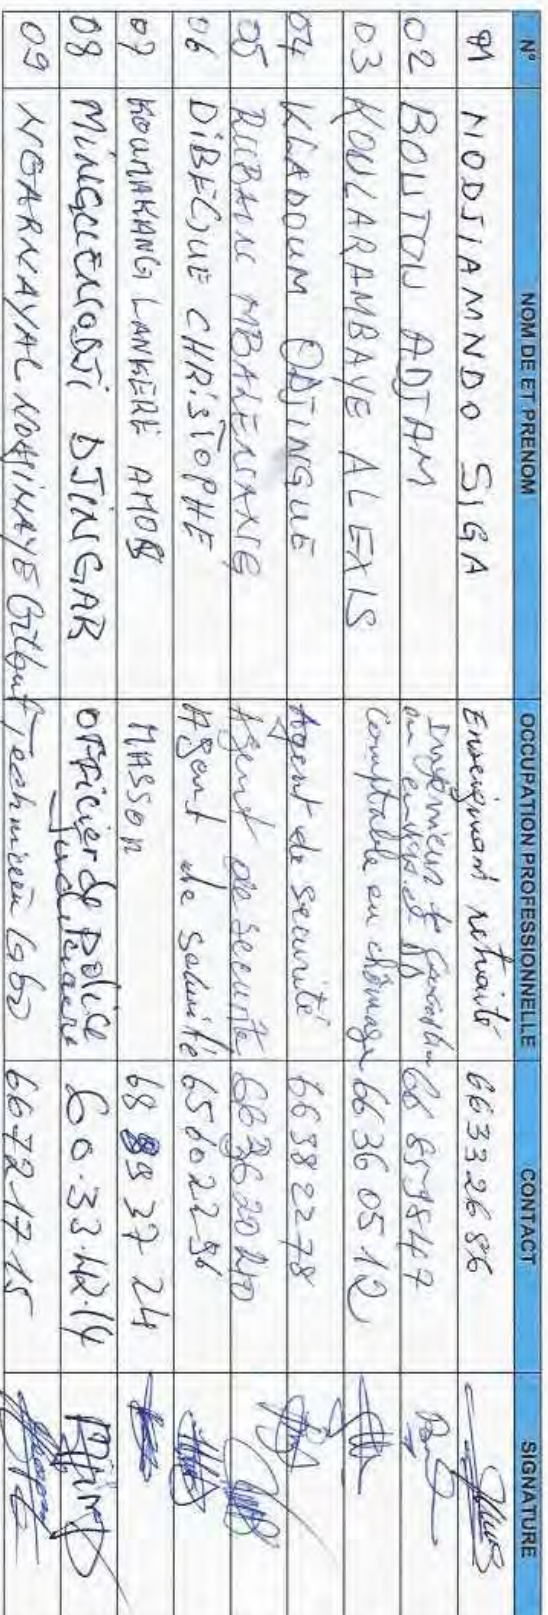 N° NOM DE ET PRENOM OCCUPATION PROFESSIONNELLE CONTACT SIGNATURE
01 NODJIAMNDO SIGA Enseignant retraité 66332686
02 BOUTOU ADJAM Ingénieur en 66 859847
03 KOULARAMBAYE ALEXIS Comptable en chômage 66 36 05 12
04 KLADOUM ODJINGUE Agent de securité 66382278
05 MBAÏENANG Agent de securite 66362040
06 DIBEGUE CHRISTOPHE Agent de securité 65602296
07 KOUMAKANG LANKERE AMOS MASSON 68 89 37 24
08 MINGUENODJI DJINGAR OFFicier de Police Judiciaire 60.33.42.14
09 NGARNAYAL Gilbert Technicien Labo 66721715